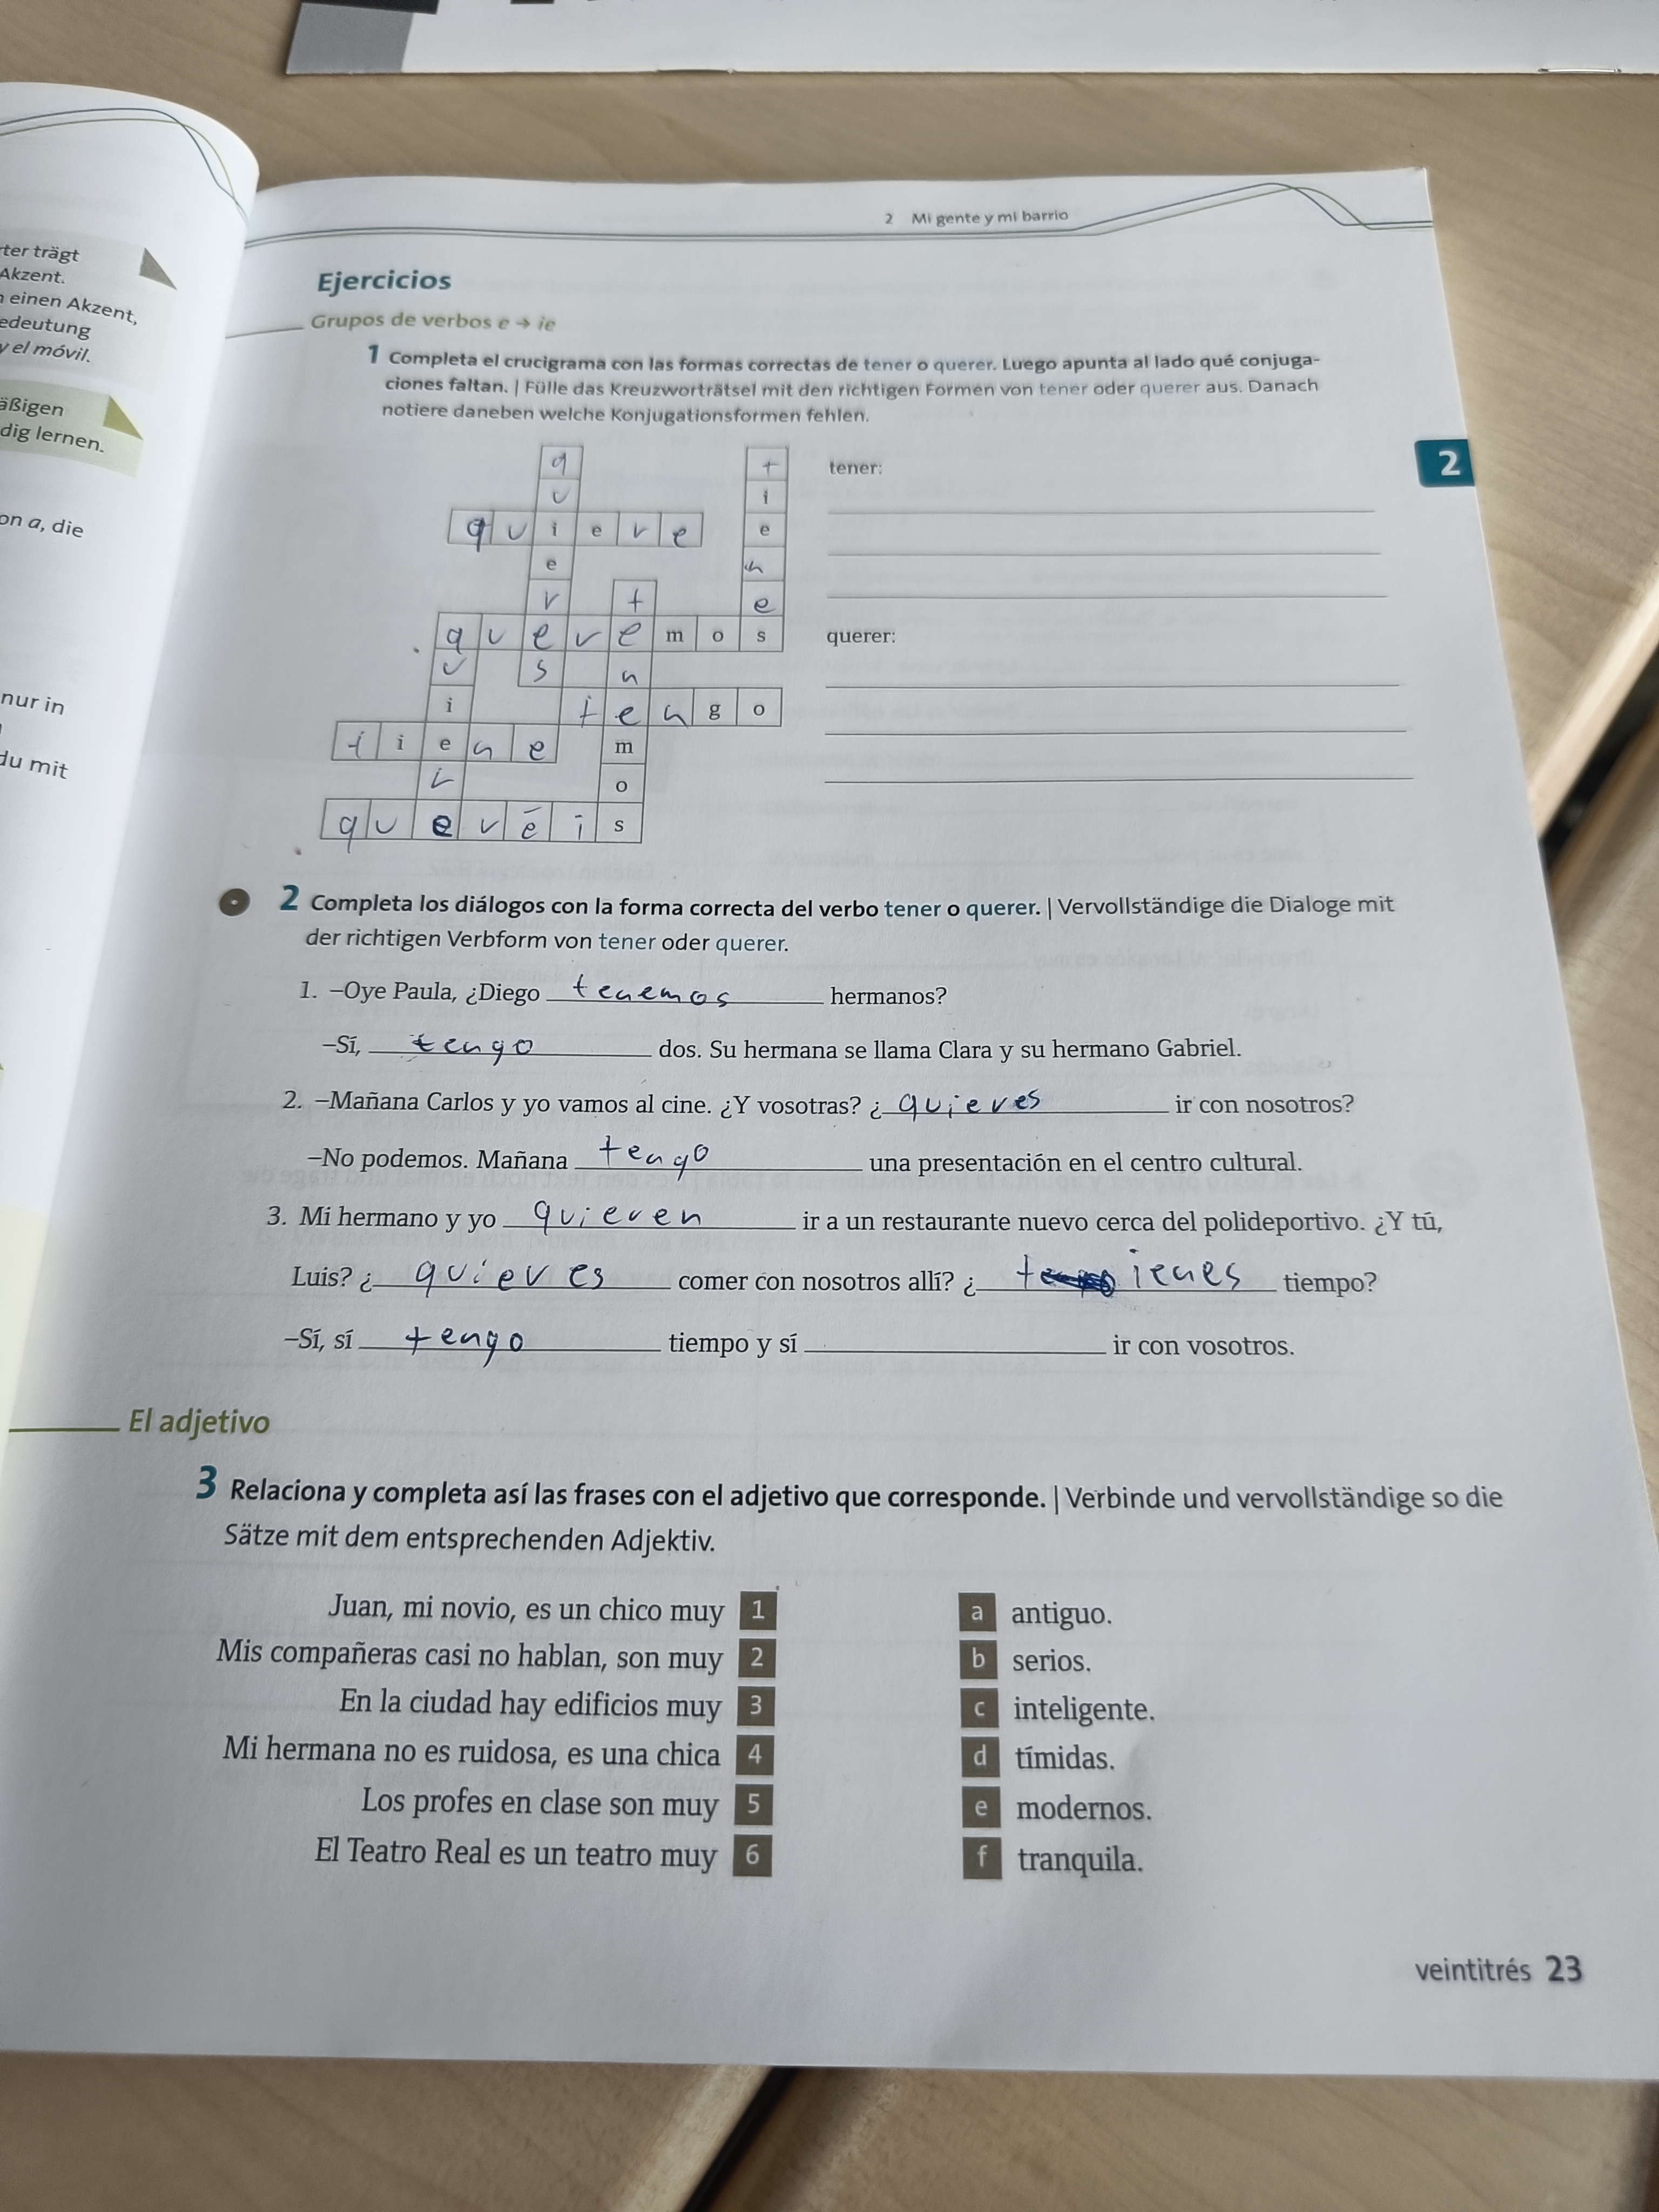 2 Mi gente y mi barrio
ter trägt
Akzent.
einen Akzent,
edeutung
y el móvil.
äßigen
dig lernen.
on a, die
nur in
du mit
Ejercicios
Grupos de verbos e → ie
1 Completa el crucigrama con las formas correctas de tener o querer. Luego apunta al lado qué conjuga-
ciones faltan. | Fülle das Kreuzworträtsel mit den richtigen Formen von tener oder querer aus. Danach
notiere daneben welche Konjugationsformen fehlen.
q t
u i
q u i e r e e
e n
r t e
q u e r e m o s
u s n
i t e n g o
t i e n e m
r o
q u e r é i s
tener:
querer:
2
2 Completa los diálogos con la forma correcta del verbo tener o querer. | Vervollständige die Dialoge mit
der richtigen Verbform von tener oder querer.
1. –Oye Paula, ¿Diego tenemos hermanos?
–Sí, tengo dos. Su hermana se llama Clara y su hermano Gabriel.
2. –Mañana Carlos y yo vamos al cine. ¿Y vosotras? ¿ quieres ir con nosotros?
–No podemos. Mañana tengo una presentación en el centro cultural.
3. Mi hermano y yo quieren ir a un restaurante nuevo cerca del polideportivo. ¿Y tú,
Luis? ¿ quieres comer con nosotros allí? ¿ tienes tiempo?
–Sí, sí tengo tiempo y sí ir con vosotros.
El adjetivo
3 Relaciona y completa así las frases con el adjetivo que corresponde. | Verbinde und vervollständige so die
Sätze mit dem entsprechenden Adjektiv.
Juan, mi novio, es un chico muy 1 a antiguo.
Mis compañeras casi no hablan, son muy 2 b serios.
En la ciudad hay edificios muy 3 c inteligente.
Mi hermana no es ruidosa, es una chica 4 d tímidas.
Los profes en clase son muy 5 e modernos.
El Teatro Real es un teatro muy 6 f tranquila.
veintitrés 23